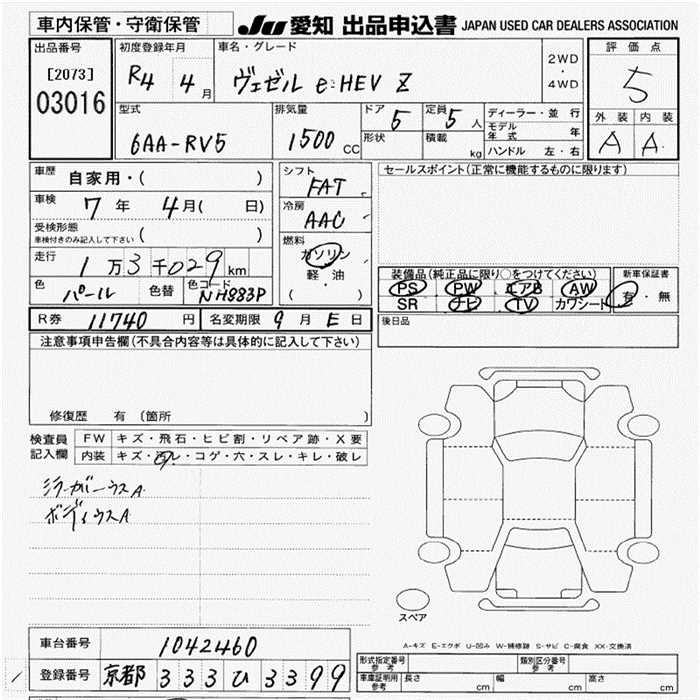 車内保管・守衛保管 JU 愛知 出品申込書 JAPAN USED CAR DEALERS ASSOCIATION
出品番号 初度登録年月 車名・グレード 評価点
[2073] R4 4月 ヴェゼル e:HEV Z 2WD・4WD 5
03016
型式 排気量 ドア 5 定員 5人 ディーラー・並行 外装 内装
6AA-RV5 1500CC 形状 積載 kg モデル年式 年 A A
ハンドル 左・右
車歴 自家用・( ) シフト FAT セールスポイント(正常に機能するものに限ります)
車検 7年 4月( 日) 冷房 AAC
受検形態 ( )
車検付きのみ記入して下さい
燃料 ガソリン
軽・油
( )
走行 1万3千029km
色 パール 色替 色コード NH883P
装備品(純正品に限り○をつけてください) 新車保証書
PS PW エアB AW 有・無
SR ナビ TV カワシート
R券 11740円 名変期限 9月 E日 後日品
注意事項申告欄(不具合内容等は具体的に記入して下さい)
修復歴 有(箇所
検査員記入欄 FW キズ・飛石・ヒビ割・リペア跡・X要
内装 キズ・汚レ・コゲ・穴・スレ・キレ・破レ
A
ボディ A
スペア
A-キズ E-エクボ U-凹み W-補修跡 S-サビ C-腐食 XX-交換済
車台番号 1042460
登録番号 京都 333 ひ 3399
形式指定番号 参考 類別区分番号 参考
車庫証明用 参考 長さ cm 幅 cm 高さ cm